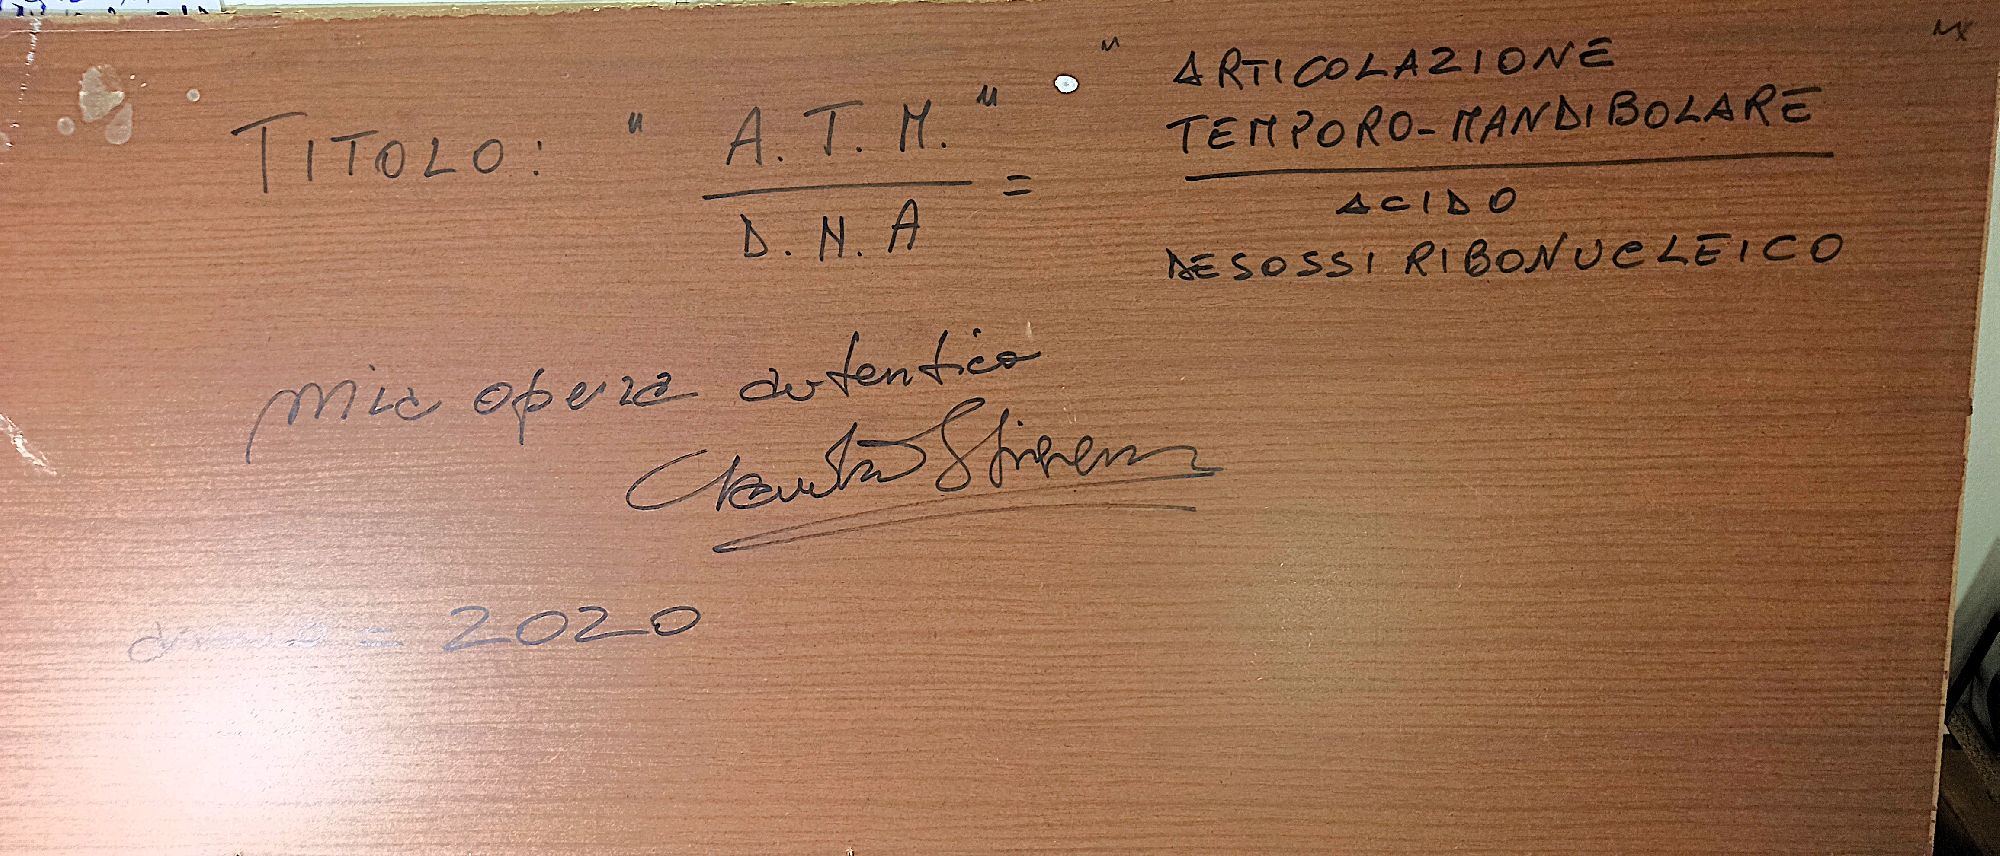 TITOLO: " A.T.M. " = " ARTICOLAZIONE
TEMPORO-MANDIBOLARE "
D.N.A
ACIDO
DESOSSIRIBONUCLEICO
mia opera autentica
Claudio
anno = 2020